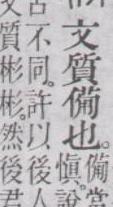 文質備也。
備當
慎。說
古不同。許以後人
文質彬彬。然後君